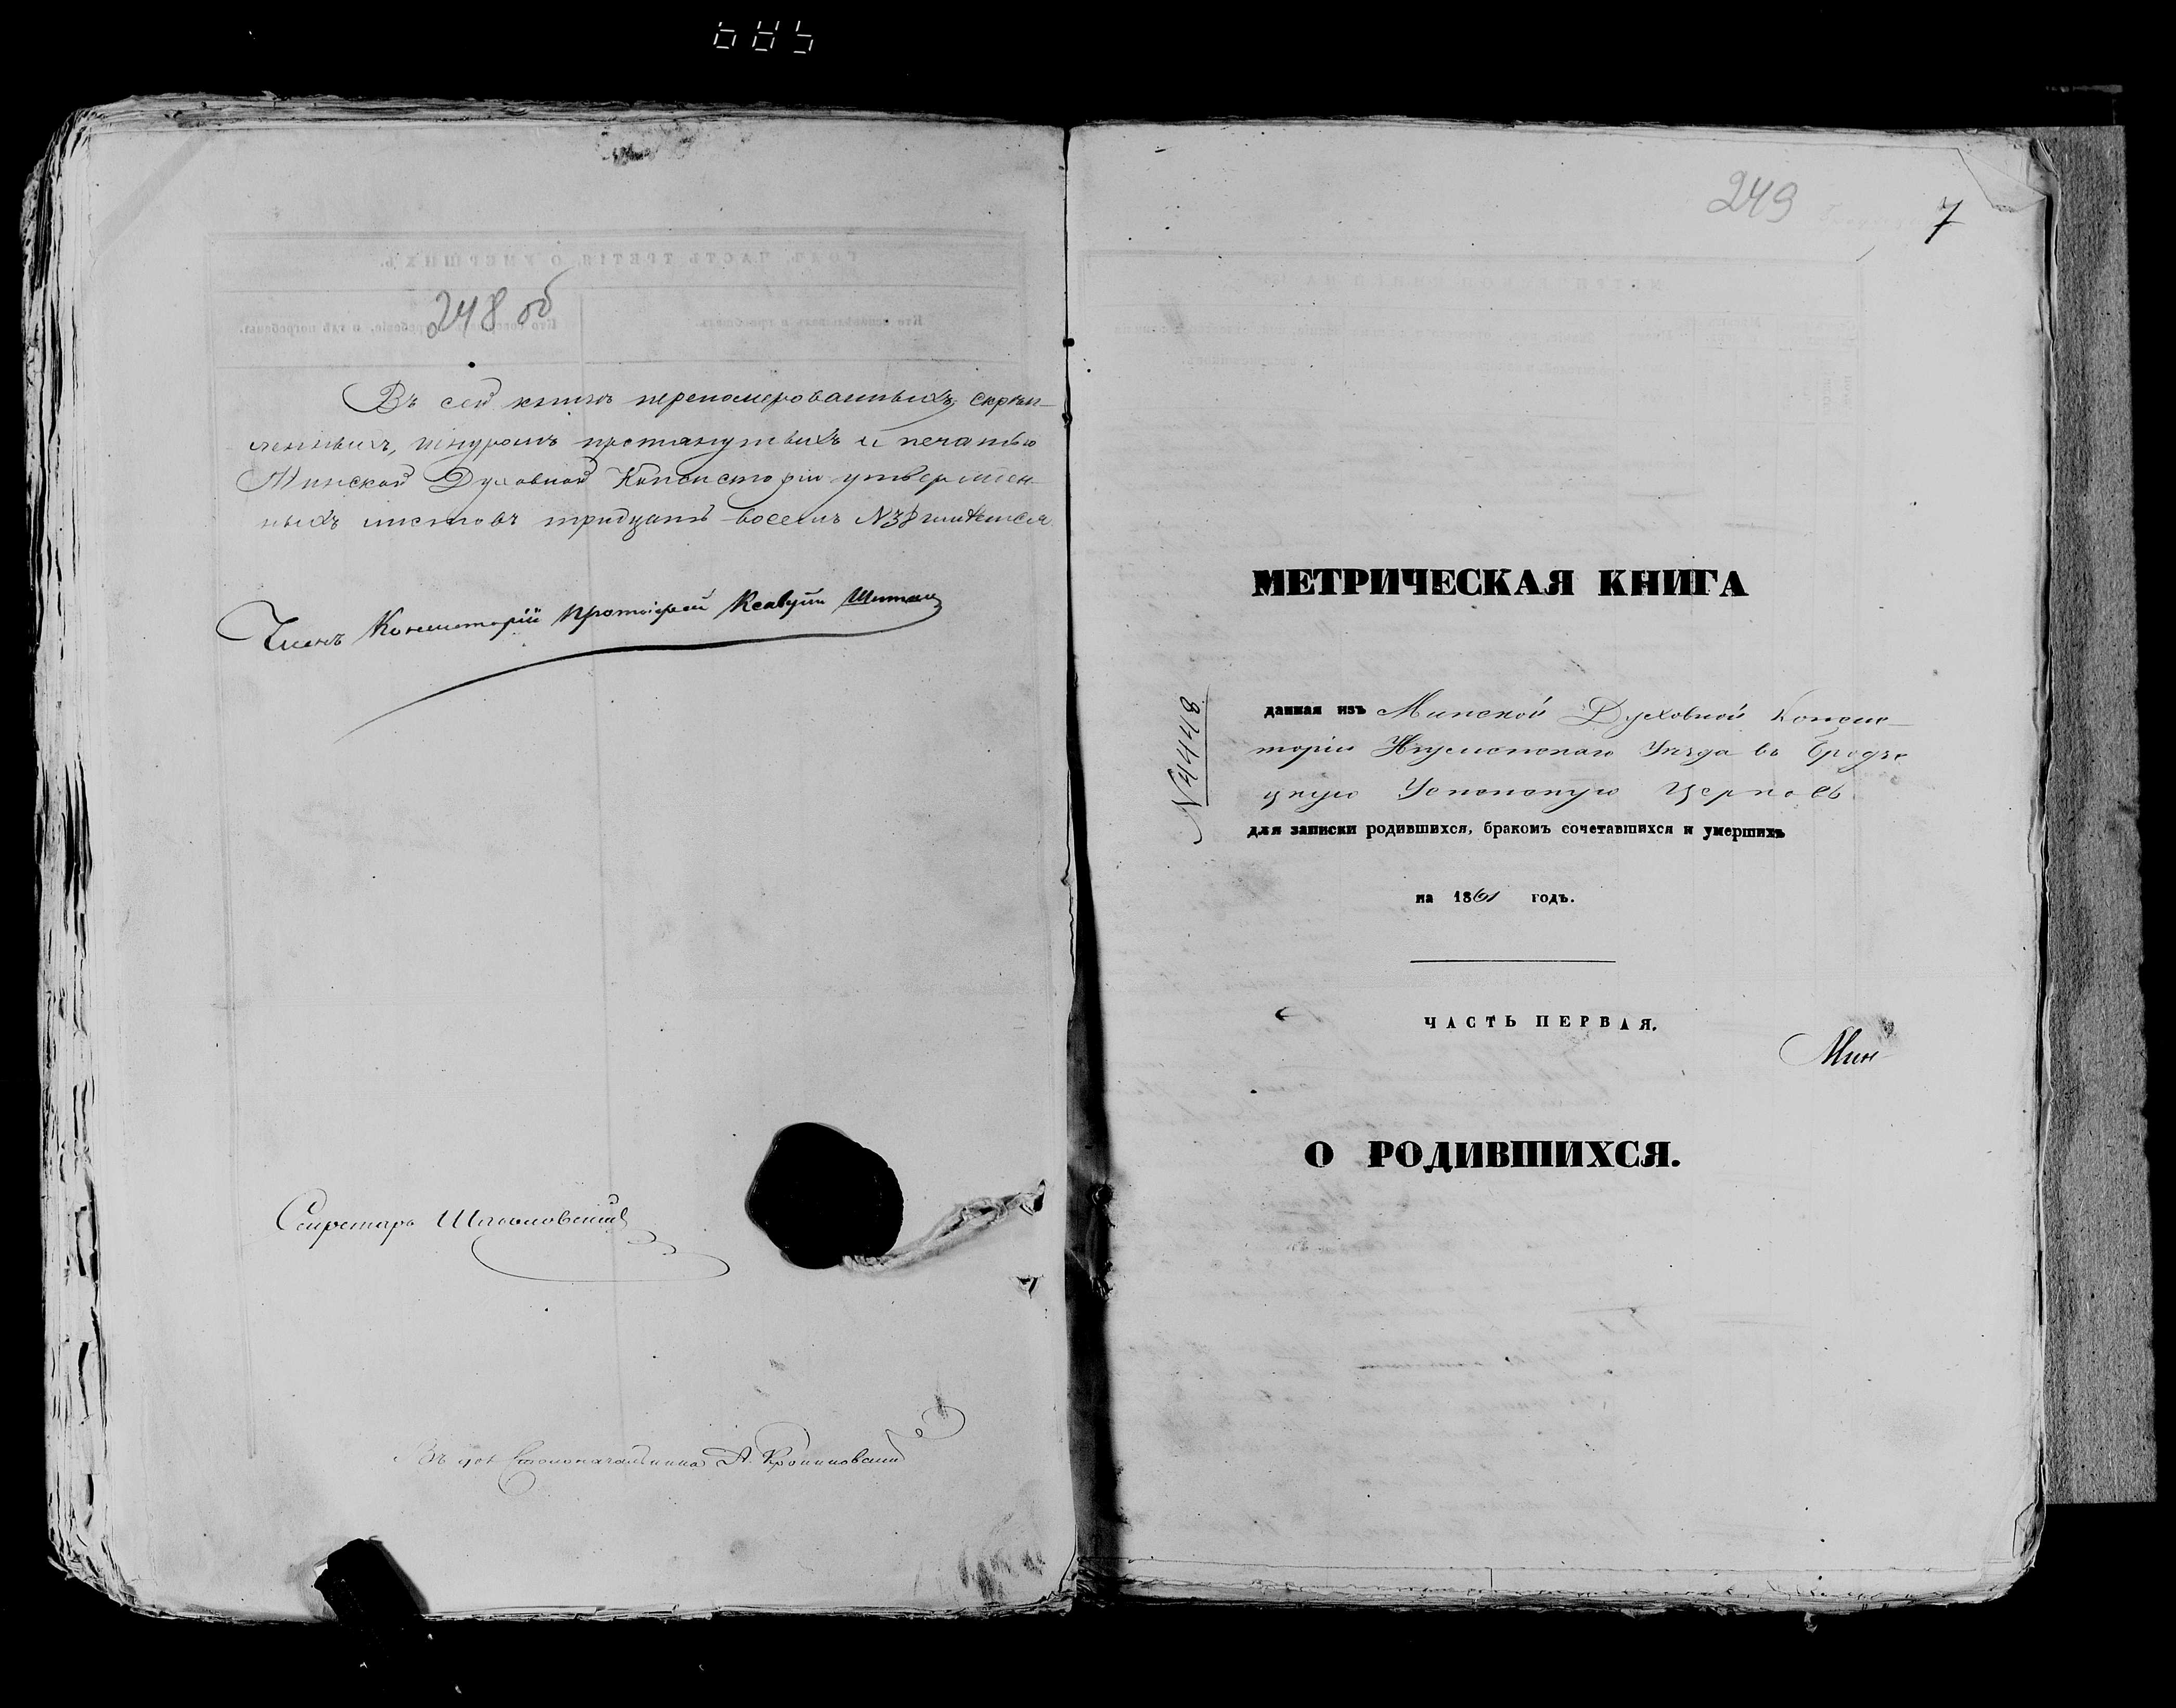 248 об
Въ сей книгѣ перенумерованныхъ, скрѣп-
ленныхъ, шнуромъ протянутыхъ и печатью
Минской Духовной Консисторіи утвержден-
ныхъ листовъ тридцать восемь №38 имѣется
Членъ Консисторіи Протоіерей
Секретарь
Въ дол. Столоначальника А.
249
7
МЕТРИЧЕСКАЯ КНИГА
№ 4448
данная изъ Минской Духовной Консис-
торіи Игуменскаго Уѣзда въ Бродзе
цкую Успенскую Церковь
для записки родившихся, бракомъ сочетавшихся и умершихъ
на 1861 годъ.
ЧАСТЬ ПЕРВАЯ.
Мин
О РОДИВШИХСЯ.